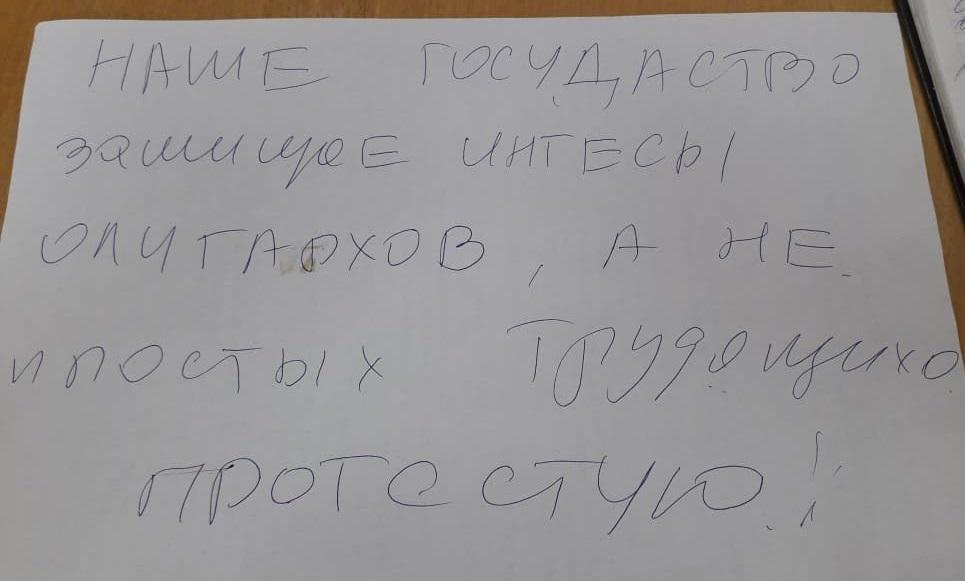 НАШЕ ГОСУДАСТВО
защищаеЕ ИНТЕСЫ
ОЛИГАОХОВ, А НЕ
И ПОСТЫХ ТРУДЯЩИХО
ПРОТЕСТУЮ!